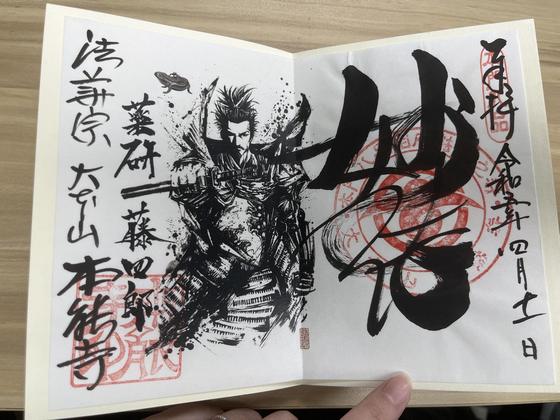 奉拝
令和 年四月十一日
妙法
薬研藤四郎
法華宗 大本山 本能寺